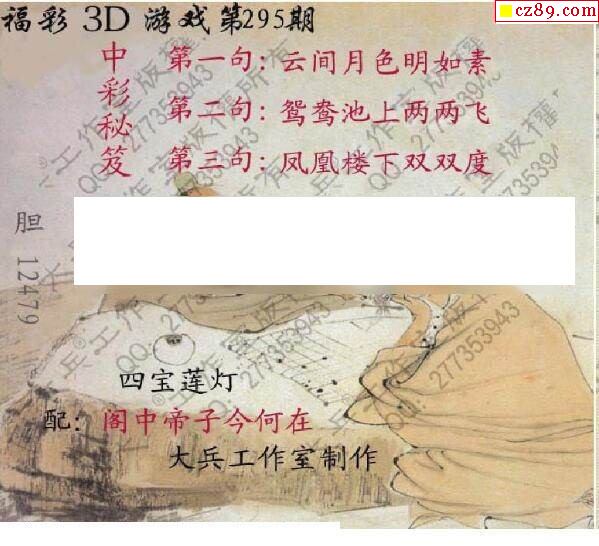 福彩 3D 游戏第295期
cz89.com
中彩秘笈
第一句: 云间月色明如素
第二句: 鸳鸯池上两两飞
第三句: 凤凰楼下双双度
胆 12479
四宝莲灯
配: 阁中帝子今何在
大兵工作室制作
大兵工作室版权所有
QQ:277353943